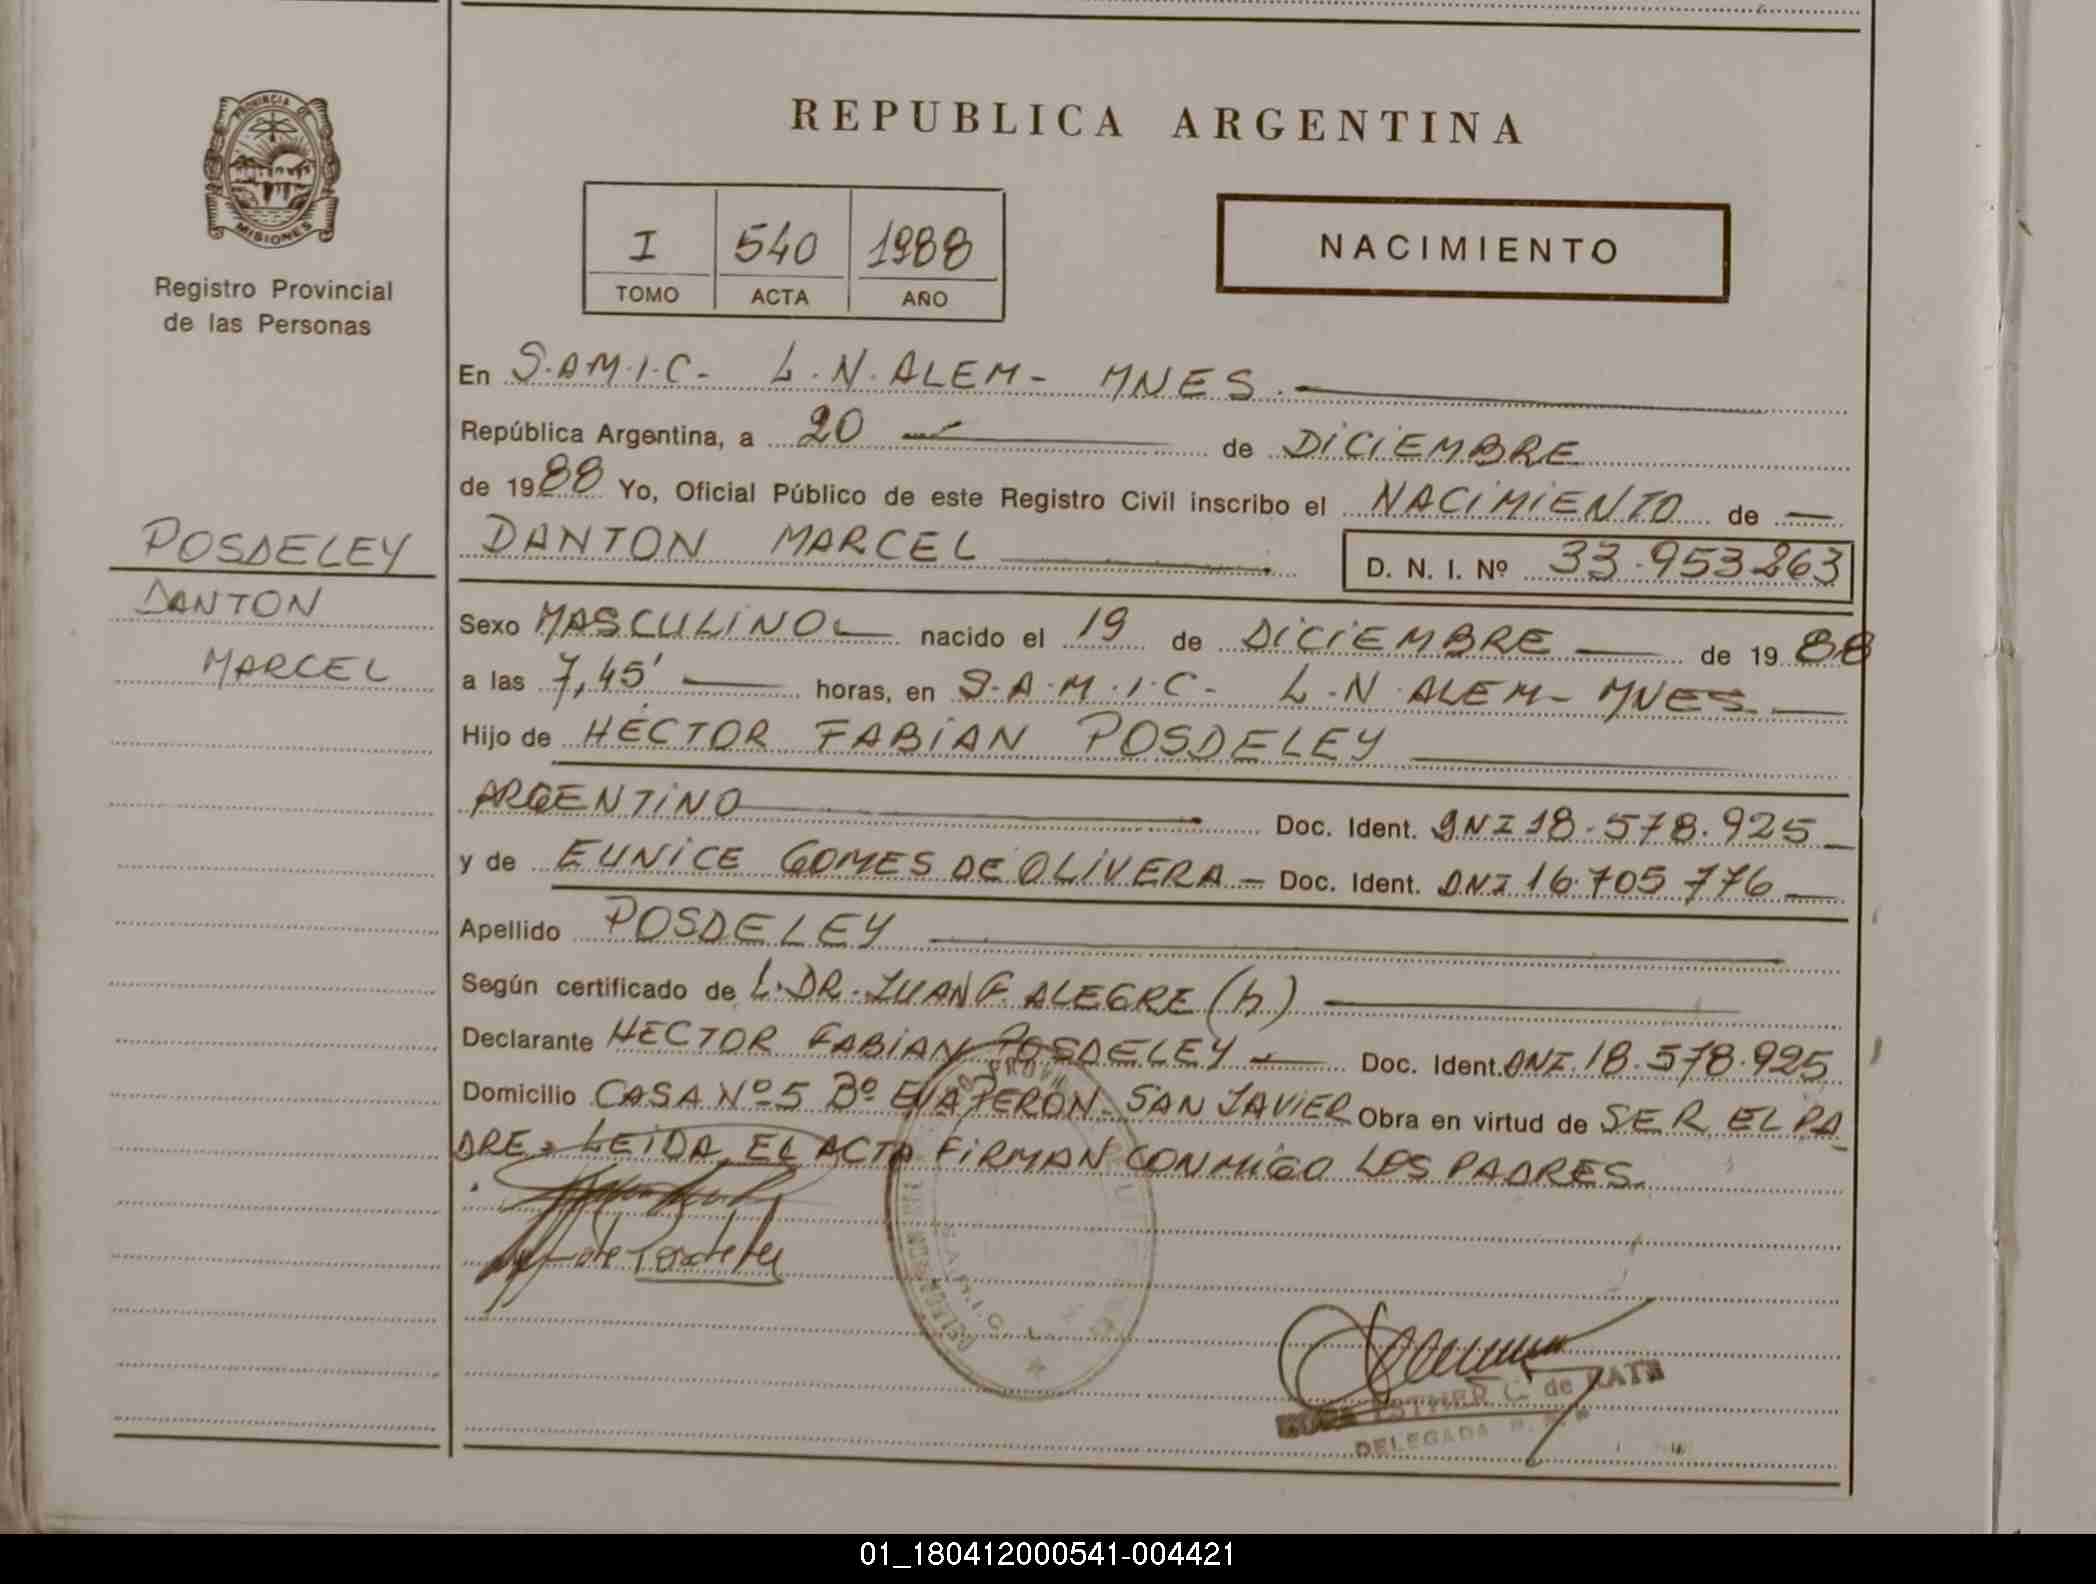 PROVINCIA DE
MISIONES
Registro Provincial
de las Personas
POSDELEY
DANTON
MARCEL
REPUBLICA ARGENTINA
I 540 1988
TOMO ACTA AÑO
NACIMIENTO
En S.A.M.I.C- L.N.ALEM- MNES.
República Argentina, a 20 de DICIEMBRE
de 1988 Yo, Oficial Público de este Registro Civil inscribo el NACIMIENTO de
DANTON MARCEL D. N. I. Nº 33.953263
Sexo MASCULINO nacido el 19 de DICIEMBRE de 1988
a las 7,45' horas, en S.A.M.I.C- L.N.ALEM- MNES.
Hijo de HECTOR FABIAN POSDELEY
ARGENTINO Doc. Ident. DNI 18.578.925
y de EUNICE GOMES DE OLIVERA - Doc. Ident. DNI 16.705 776
Apellido POSDELEY
Según certificado de L.DR. JUAN F. ALEGRE (h)
Declarante HECTOR FABIAN POSDELEY Doc. Ident. DNI. 18.578.925
Domicilio CASA Nº 5 Bº EVA PERON- SAN JAVIER Obra en virtud de SER EL PA-
DRE. LEIDA EL ACTA FIRMAN CONMIGO LOS PADRES.
de Posdeley
S.A.M.I.C. L.
ESTHER C. de RATH
DELEGADA
01_180412000541-004421